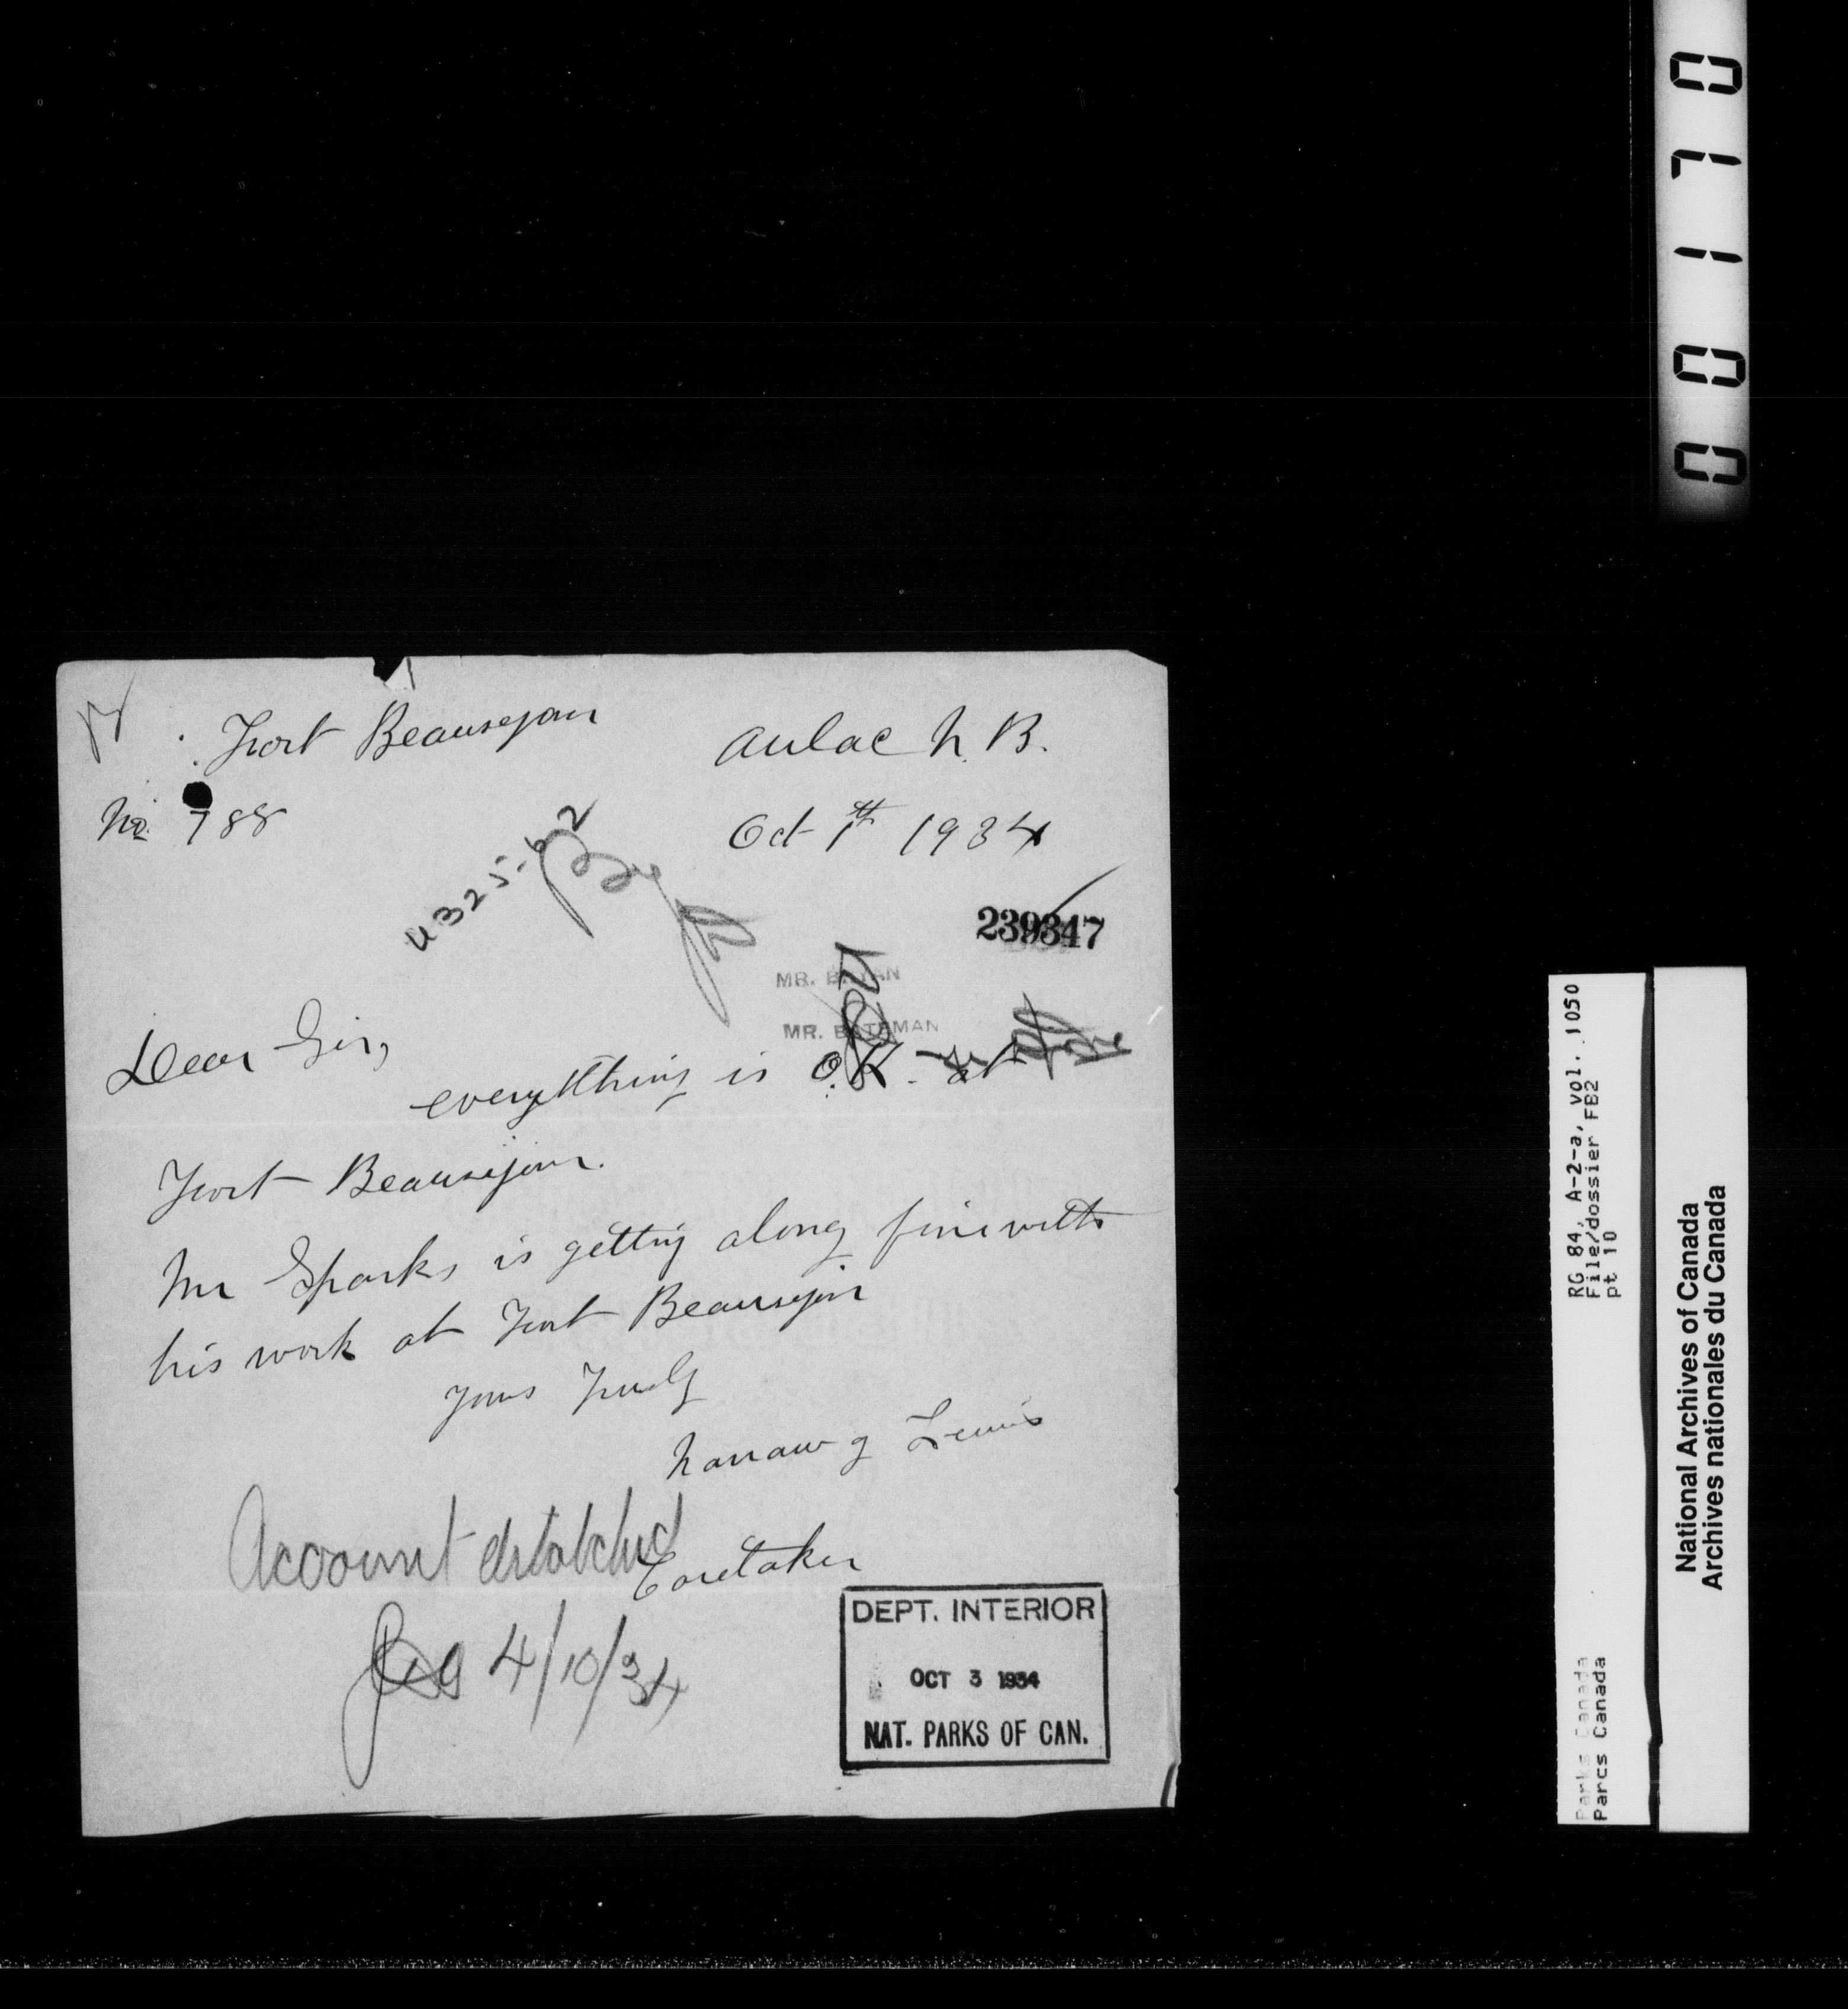 Fort Beausejour Aulac N.B.
No. 788 Oct 1th 1934
U325-62
239347
MR. BRYAN
MR. BATEMAN
Dear Sir,
everything is O.K. at
Fort Beausejour.
Mr Sparks is getting along fine with
his work at Fort Beausejour
Yours Truly
Lewis
Account detached
Caretaker
4/10/34
DEPT. INTERIOR
OCT 3 1934
NAT. PARKS OF CAN.
00170
RG 84, A-2-a, vol. 1050
File/dossier FB2
pt 10
Parks Canada
Parcs Canada
National Archives of Canada
Archives nationales du Canada